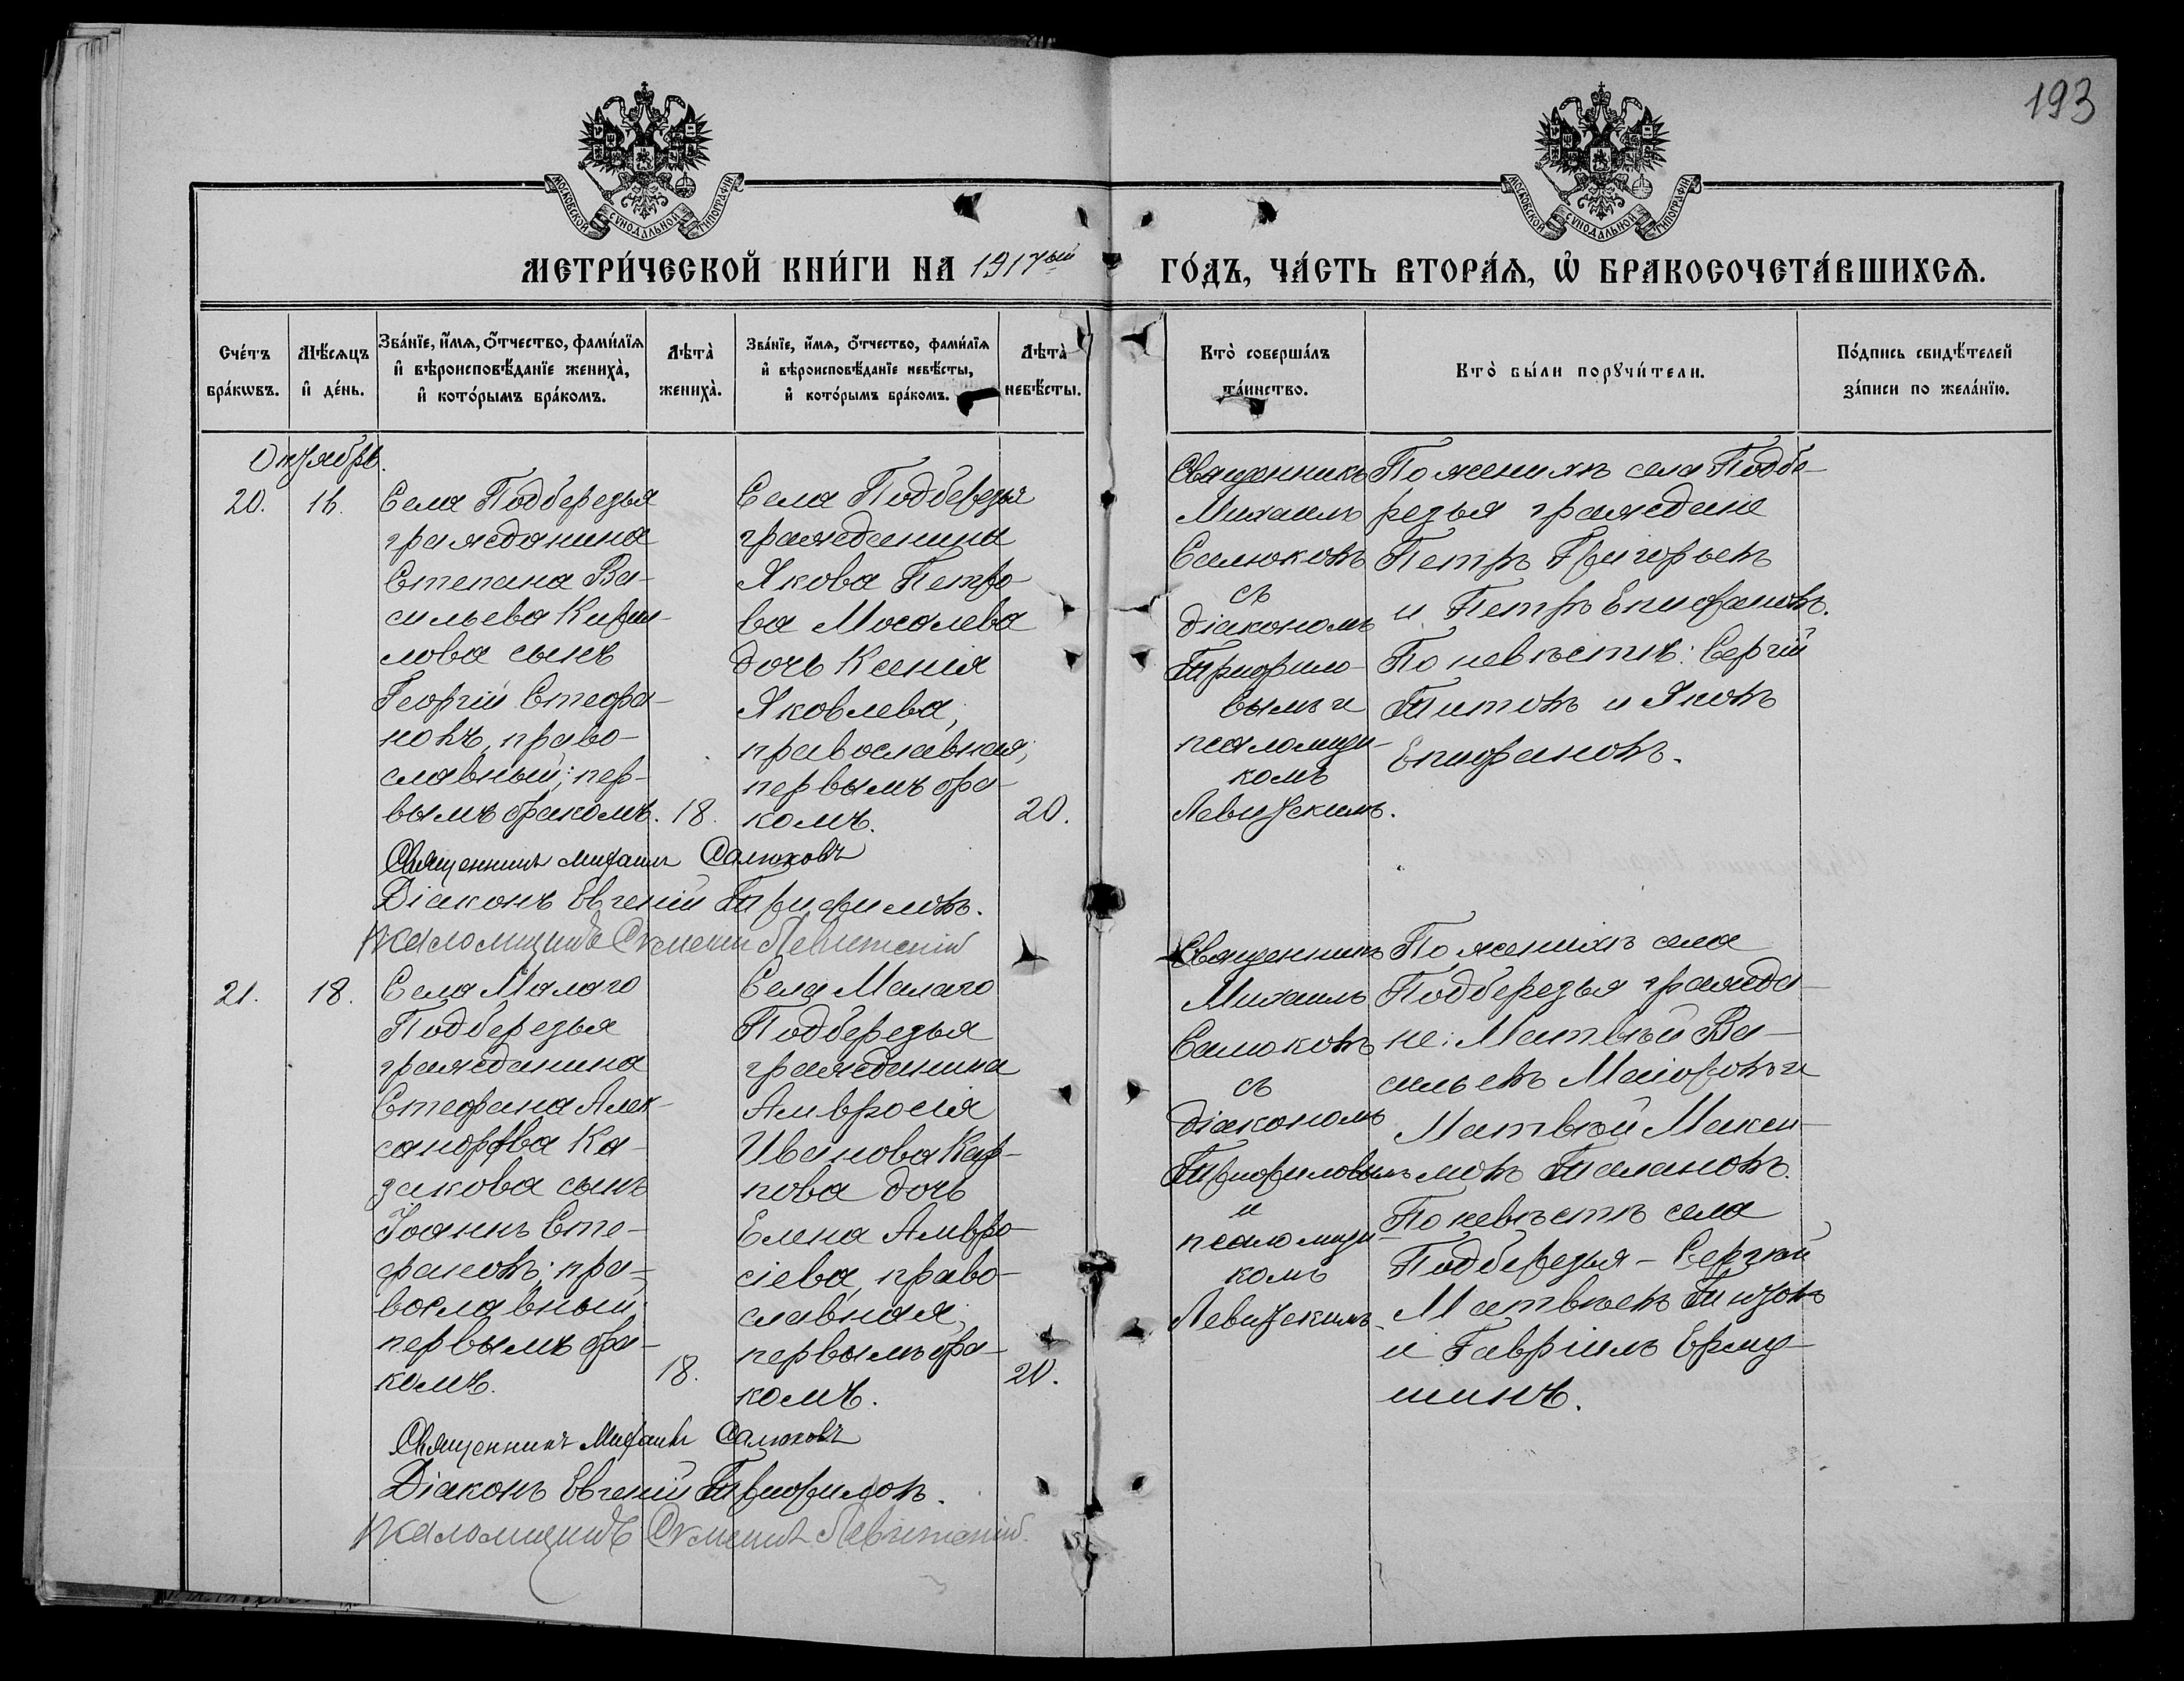 193
МОСКОВСКОЙ СѴНОДАЛЬНОЙ ТИПОГРАФІИ
МОСКОВСКОЙ СѴНОДАЛЬНОЙ ТИПОГРАФІИ
МЕТРИ́ЧЕСКОЙ КНИ́ГИ НА 1917ый ГО́ДЪ, ЧА́СТЬ ВТОРА́Ѧ, Ѽ БРАКОСОЧЕТА́ВШИХСѦ.
Сче́тъ
бра́кѡвъ.
Мѣ́сѧцъ
и҆ де́нь.
Зва́нїе, и҆́мѧ, ѻ҆́тчество, фами́лїѧ
и҆ вѣроисповѣ́данїе жениха̀,
и҆ кото́рымъ бра́комъ.
Лѣта̀
жениха̀.
Зва́нїе, и҆́мѧ, ѻ҆́тчество, фами́лїѧ
и҆ вѣроисповѣ́данїе невѣ́сты,
и҆ кото́рымъ бра́комъ.
Лѣта̀
невѣ́сты.
Кто̀ соверша́лъ
та́инство.
Кто̀ бы́ли порꙋчи́тели.
По́дпись свидѣ́телей
за́писи по жела́нїю.
Октябрь.
20.
16.
Села Подберезья
гражданина
Степана Ва-
сильева Кирил-
лова сынъ
Георгій Стефа-
новъ, право-
славный; пер-
вымъ бракомъ.
18.
Села Подберезья
гражданина
Якова Петро-
ва Мосолева
дочь Ксенія
Яковлева,
православная;
первымъ бра-
комъ.
20.
Священникъ
Михаилъ
Салюковъ
съ
діакономъ
Трифило-
вымъ и
псаломщи-
комъ
Левитскимъ.
По женихѣ села Подбе-
резья граждане
Петръ Григорьевъ
и Петръ Епифановъ.
По невѣстѣ: Сергій
Титовъ и Яковъ
Епифановъ.
Священникъ Михаилъ Салюковъ
Діаконъ Евгеній Трифиловъ.
Псаломщикъ Левитскій
21.
18.
Села Малаго
Подберезья
гражданина
Стефана Алек-
сандрова Ка-
закова сынъ
Іоаннъ Сте-
фановъ; пра-
вославный;
первымъ бра-
комъ.
18.
Села Малаго
Подберезья
гражданина
Амвросія
Иванова Кар-
пова дочь
Елена Амвро-
сіева, право-
славная;
первымъ бра-
комъ.
20.
Священникъ
Михаилъ
Салюковъ
съ
діакономъ
Трифиловымъ
и
псаломщи-
комъ
Левитскимъ.
По женихѣ села
Подберезья гражда-
не: Матвѣй Ва-
сильевъ Маіоровъ и
Матвѣй Макси-
мовъ Талановъ.
По невѣстѣ села
Подберезья - Сергѣй
Матвѣевъ Титовъ
и Гавріилъ Ерму-
шинъ.
Священникъ Михаилъ Салюковъ
Діаконъ Евгеній Трифиловъ.
Псаломщикъ Левитскій.